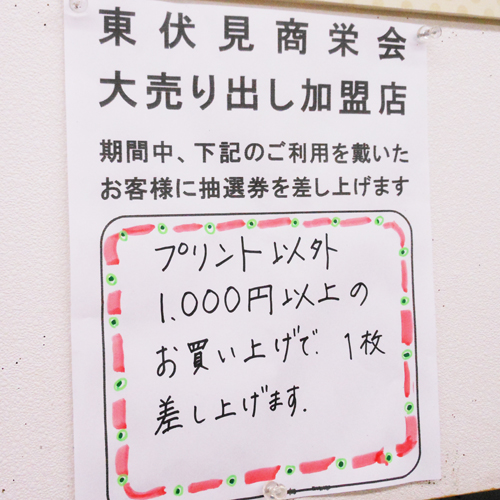 東伏見商栄会
大売り出し加盟店
期間中、下記のご利用を戴いた
お客様に抽選券を差し上げます
プリント以外
1.000円以上の
お買い上げで.1枚
差し上げます.